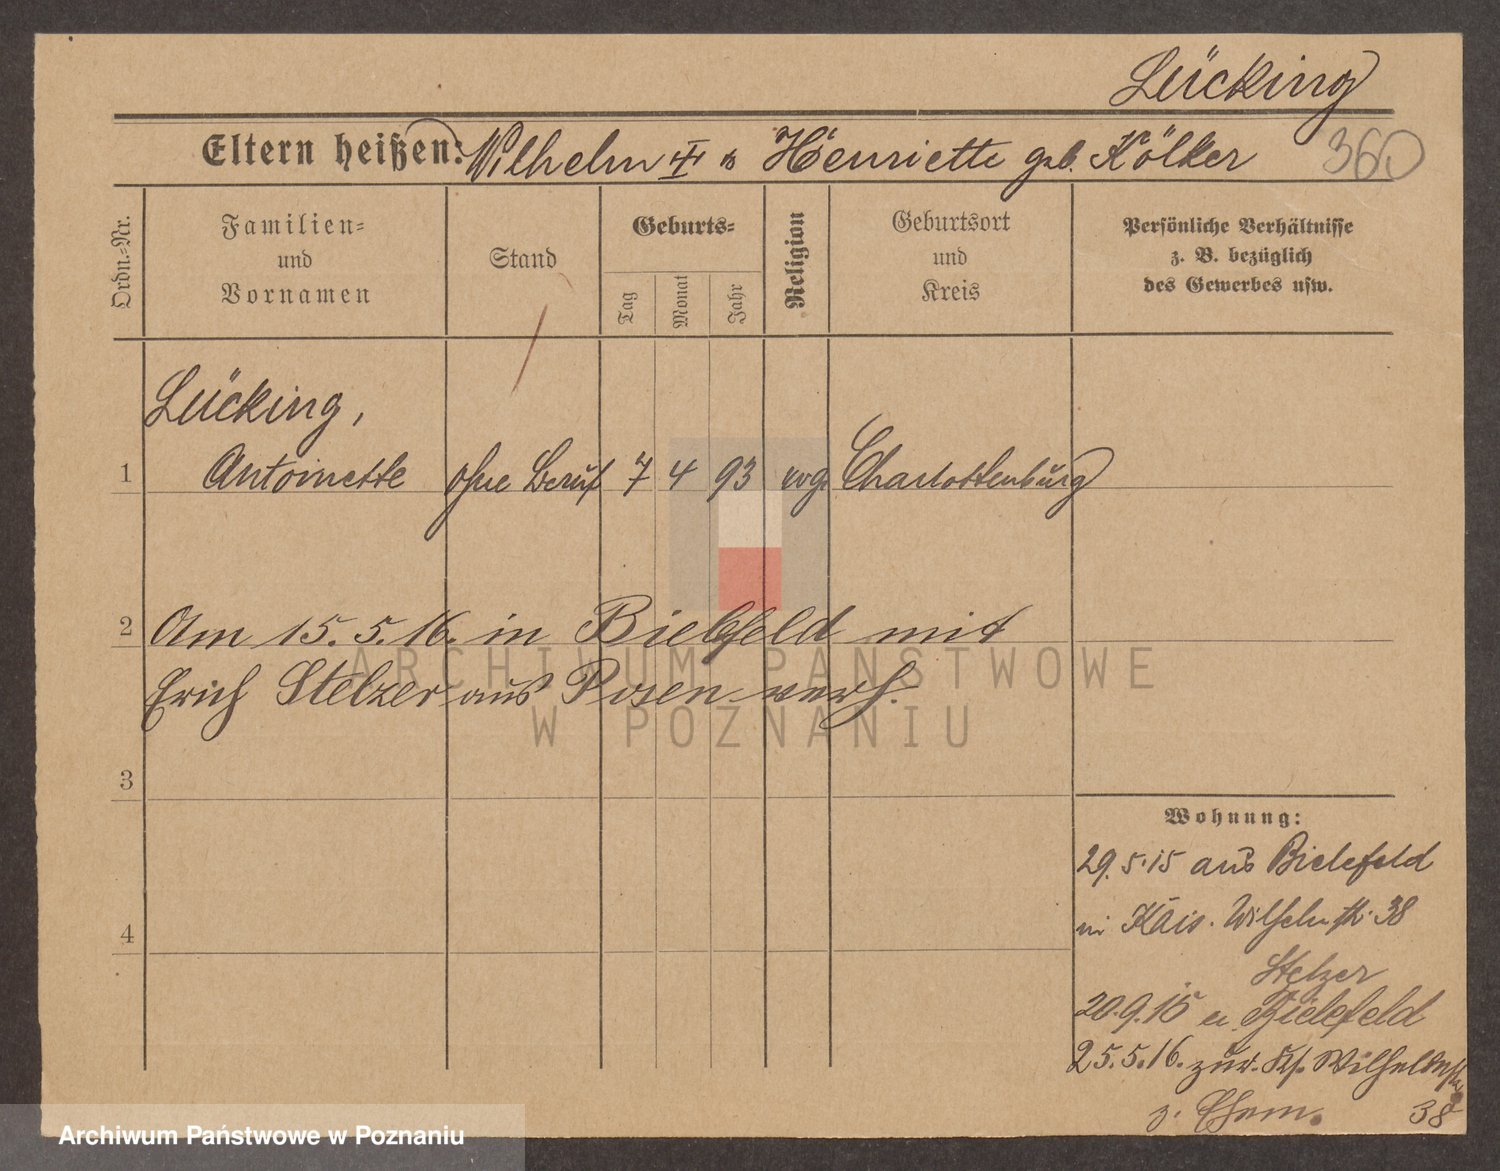 Lücking
Eltern heißen: Wilhelm u Henriette geb. Kölker
360
Ordn.-Nr.
Familien-
und
Vornamen
Stand
Geburts-
Tag
Monat
Jahr
Religion
Geburtsort
und
Kreis
Persönliche Verhältnisse
z. B. bezüglich
des Gewerbes usw.
Lücking,
1 Antoinette ohne Beruf 7 4 93 evg. Charlottenburg
2 Am 15. 5. 16. in Bielefeld mit
Erich Stelzer aus Posen verh.
3
4
Wohnung:
29.5.15 aus Bielefeld
in Kais. Wilhelmstr. 38
Stelzer
20.9.15 Bielefeld
25.5.16. zur. Ks. Wilhelmstr.
z. Ehem. 38
ARCHIWUM PAŃSTWOWE
W POZNANIU
Archiwum Państwowe w Poznaniu